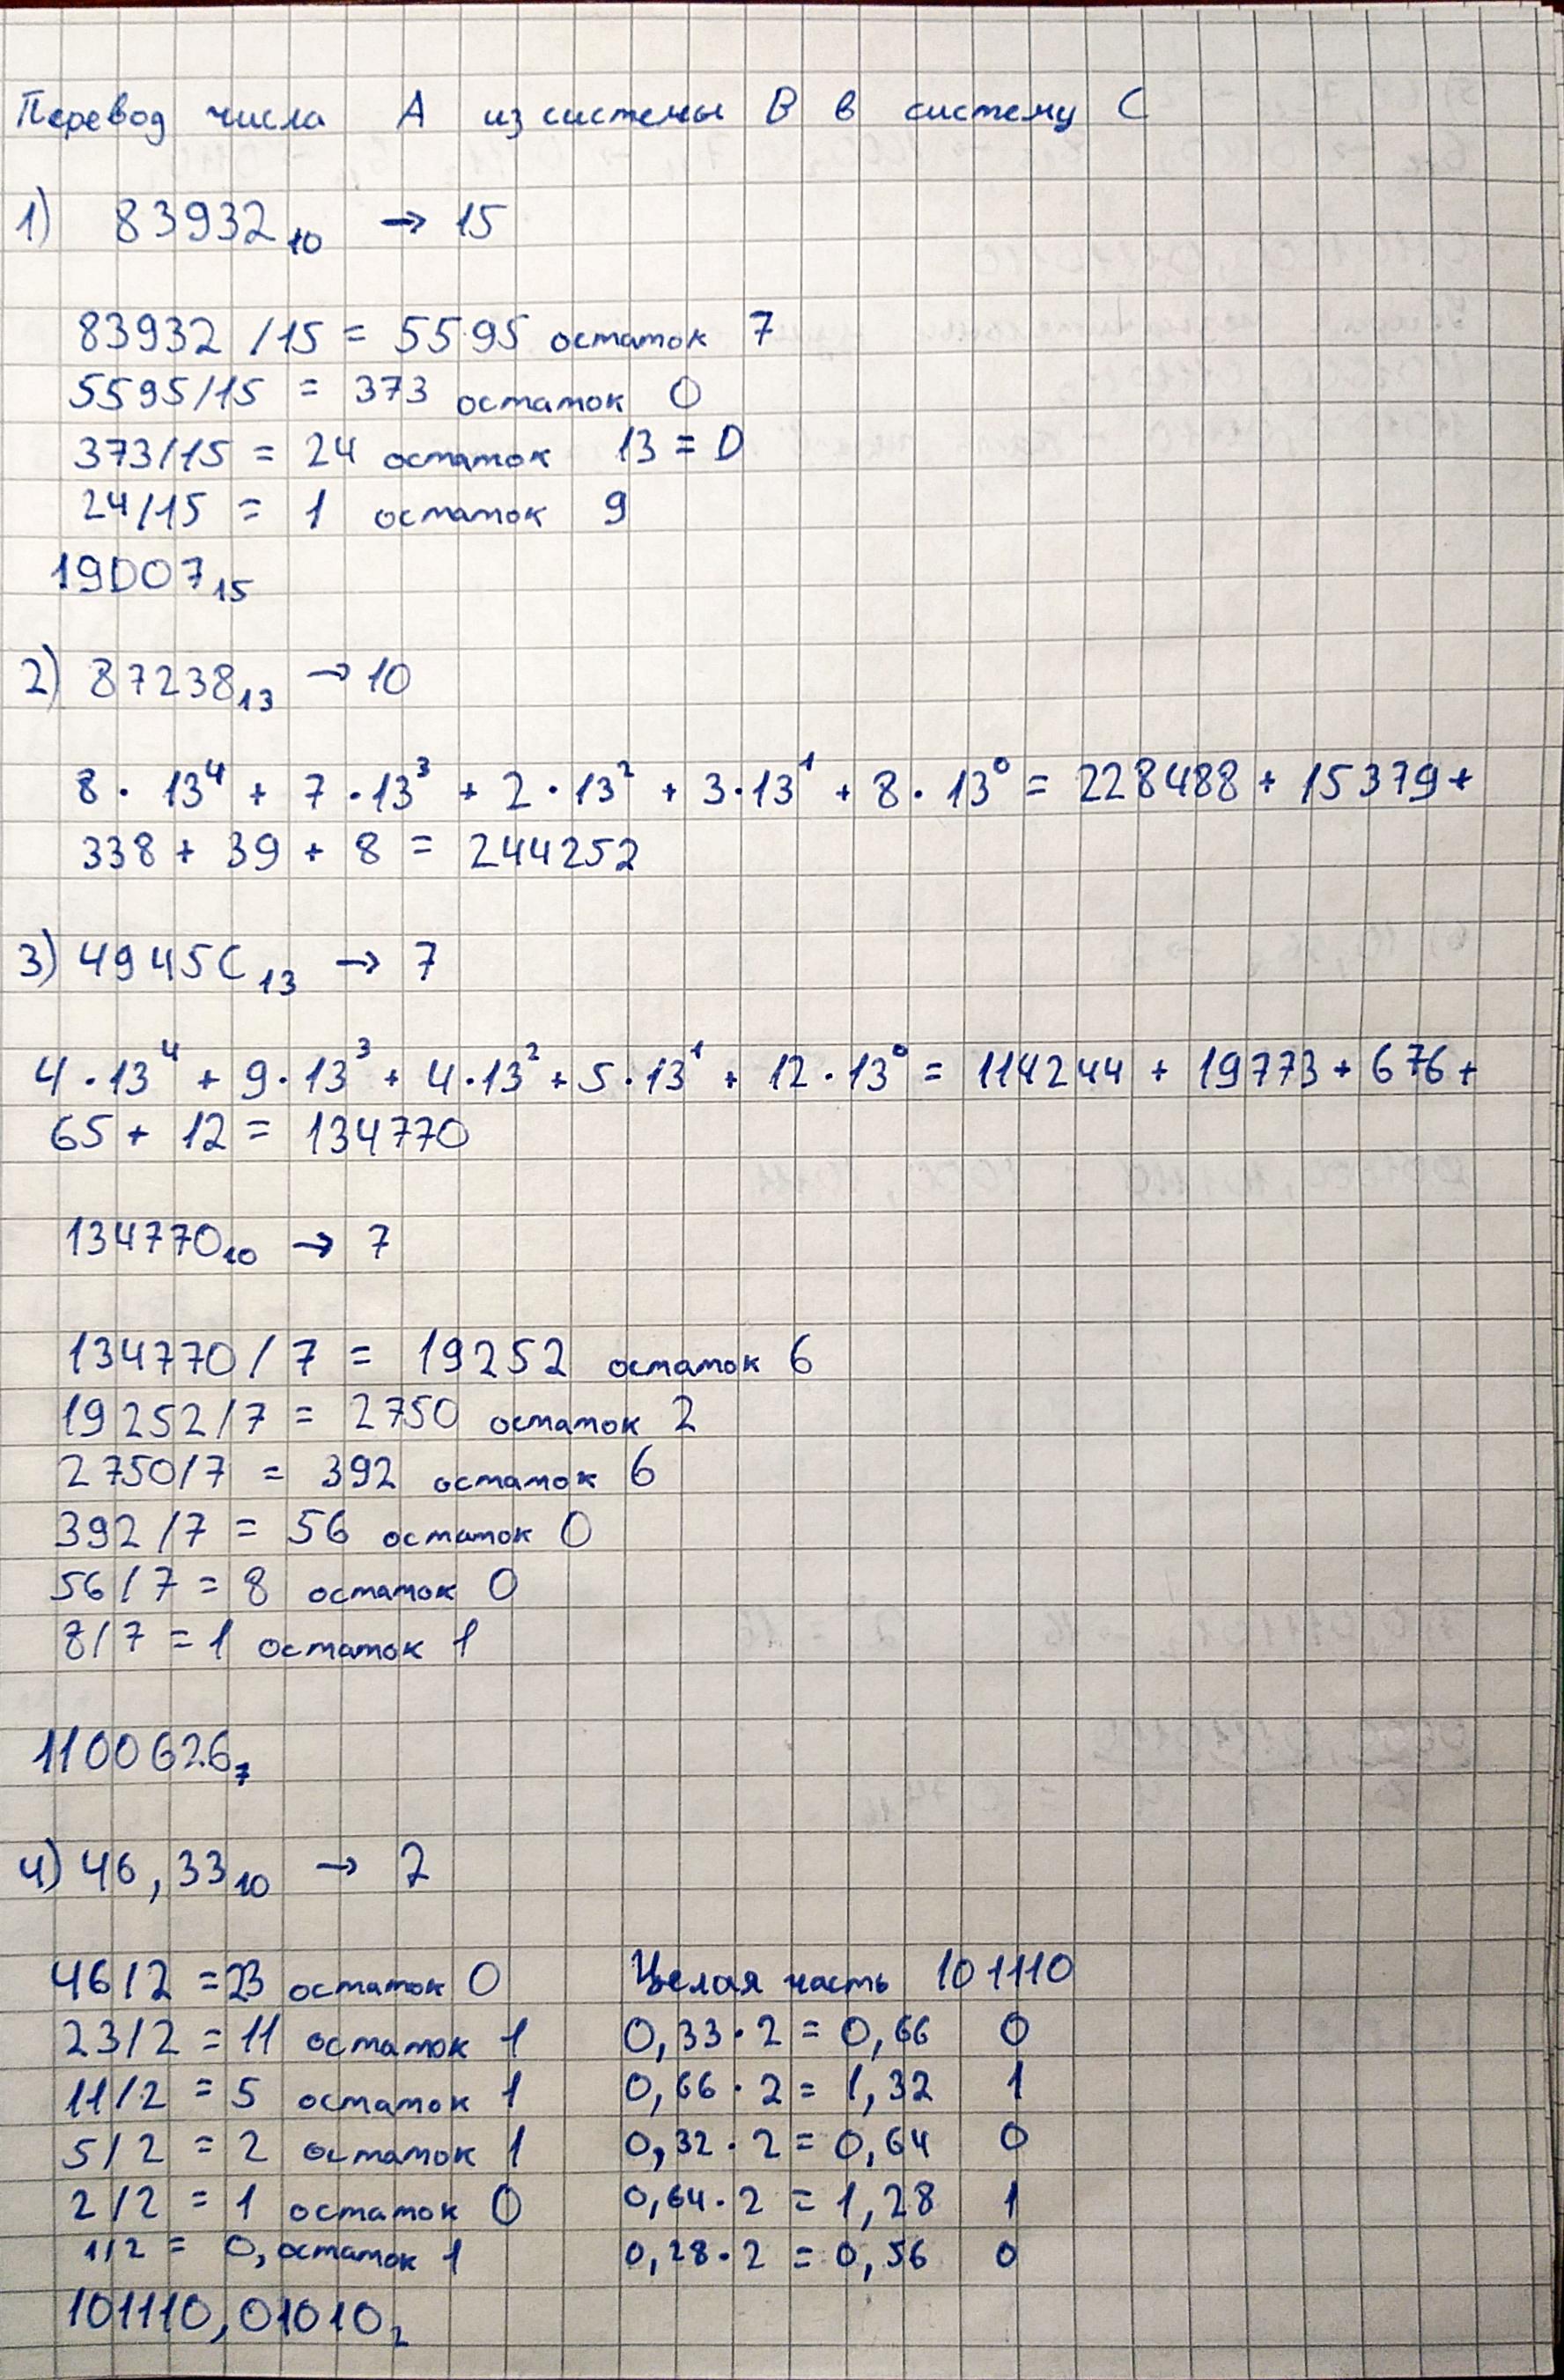 Перевод числа A из системы B в систему C
1) 83932₁₀ → 15
83932 /15 = 5595 остаток 7
5595/15 = 373 остаток 0
373/15 = 24 остаток 13 = D
24/15 = 1 остаток 9
19D07₁₅
2) 87238₁₃ → 10
8 · 13⁴ + 7 · 13³ + 2 · 13² + 3 · 13¹ + 8 · 13⁰ = 228488 + 15379 +
338 + 39 + 8 = 244252
3) 4945C₁₃ → 7
4 · 13⁴ + 9 · 13³ + 4 · 13² + 5 · 13¹ + 12 · 13⁰ = 114244 + 19773 + 676 +
65 + 12 = 134770
134770₁₀ → 7
134770 / 7 = 19252 остаток 6
19252/7 = 2750 остаток 2
2750/7 = 392 остаток 6
392/7 = 56 остаток 0
56/7 = 8 остаток 0
8/7 = 1 остаток 1
1100626₇
4) 46,33₁₀ → 2
46/2 = 23 остаток 0
23/2 = 11 остаток 1
11/2 = 5 остаток 1
5/2 = 2 остаток 1
2/2 = 1 остаток 0
1/2 = 0, остаток 1
Целая часть 101110
0,33 · 2 = 0,66 0
0,66 · 2 = 1,32 1
0,32 · 2 = 0,64 0
0,64 · 2 = 1,28 1
0,28 · 2 = 0,56 0
101110,01010₂